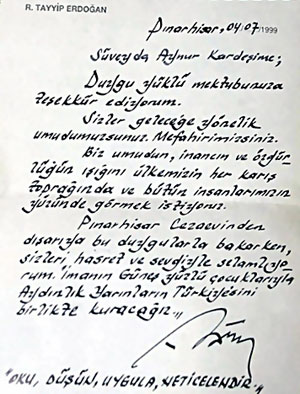 R. TAYYİP ERDOĞAN
Pınarhisar, 04/07/1999
Süveyda Aynur Kardeşime;
Duygu yüklü mektubunuza
teşekkür ediyorum.
Sizler geleceğe yönelik
umudumuzsunuz. Mefahirimizsiniz.
Biz umudun, inancın ve özgür-
lüğün ışığını ülkemizin her karış
toprağında ve bütün insanlarımızın
yüzünde görmek istiyoruz.
Pınarhisar Cezaevinden
dışarıya bu duygularla bakarken,
sizleri hasret ve sevgiyle selamlıyo-
rum. İmanın Güneş yüzlü çocuklarıyla
Aydınlık Yarınların Türkiyesini
birlikte kuracağız.,,
"OKU, DÜŞÜN, UYGULA, NETİCELENDİR.,,